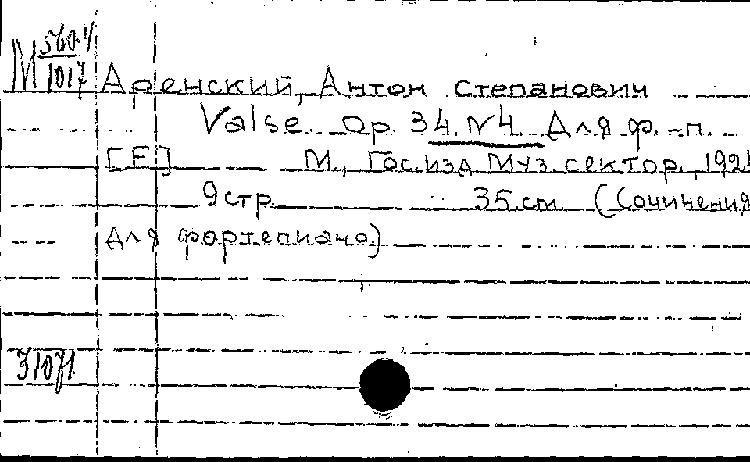 М 560-4/1017
Аренский, Антон Степанович
Valse Op. 34. №4. Для ф.-п.
[F] М., Гос. изд. Муз. сектор,
9 стр. 35 см (Сочинения
для фортепиано)
31071